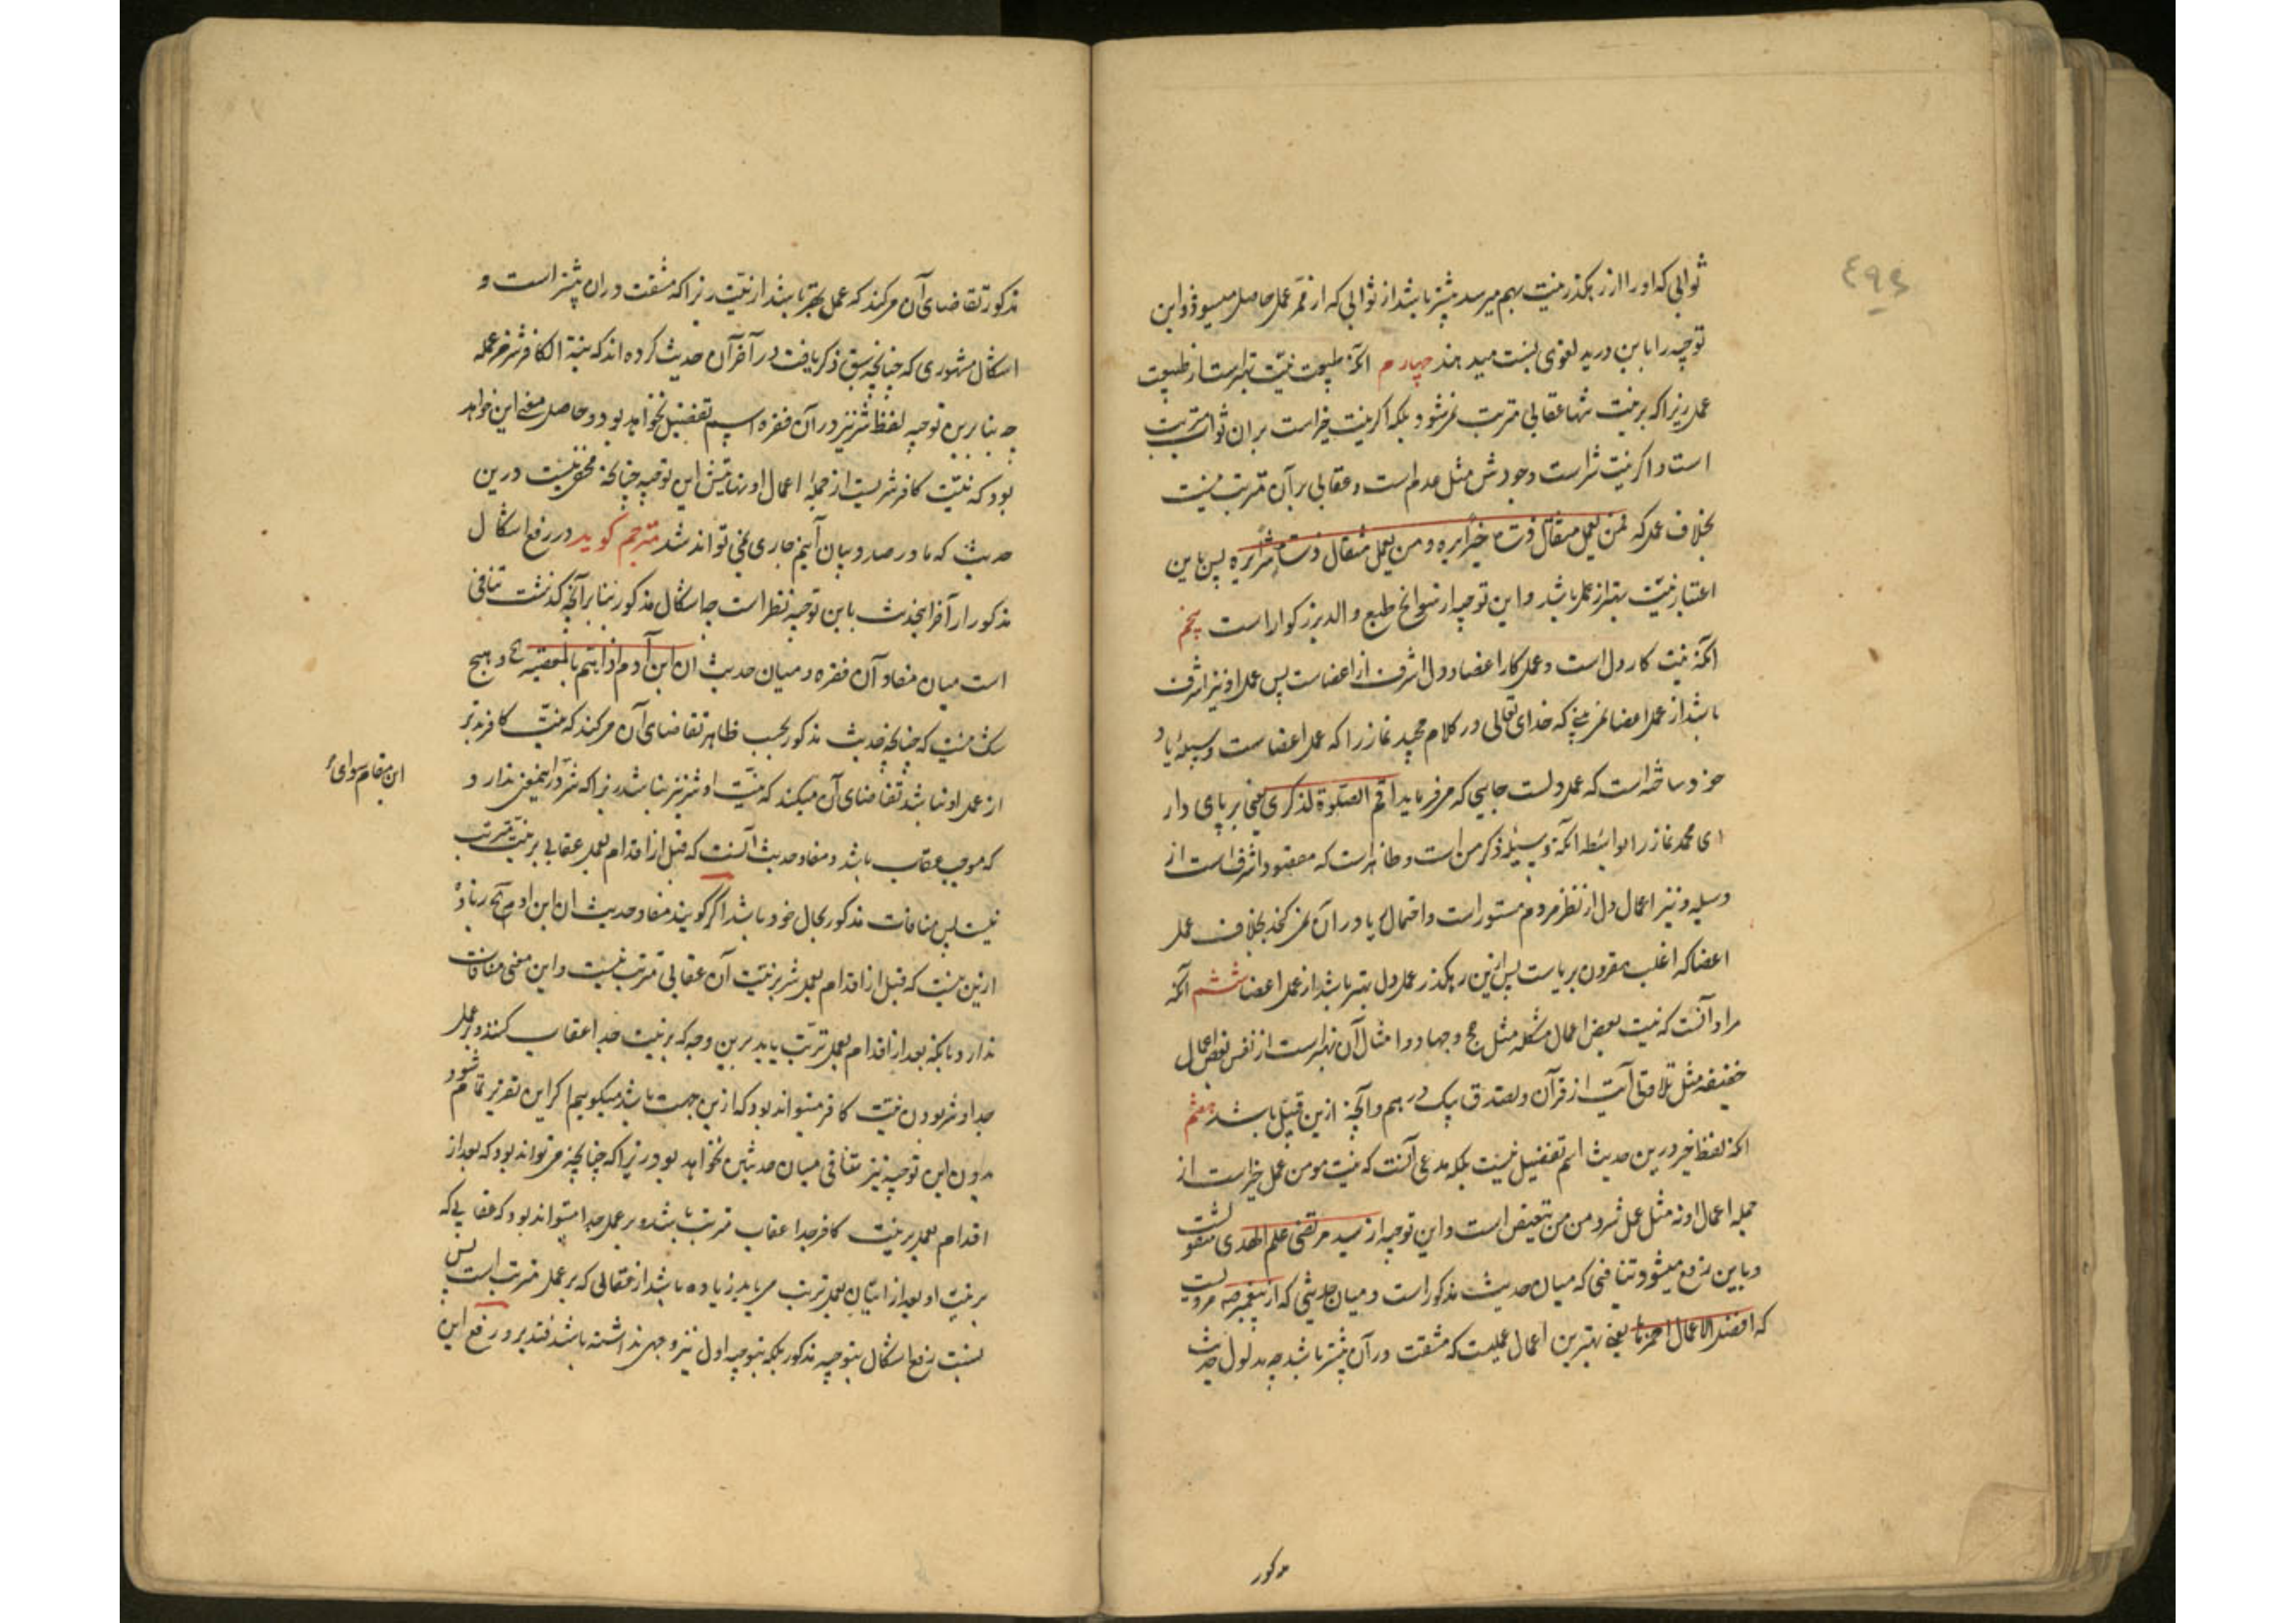 ٤٩٤
ثوابی که او را از رهگذر نیت بهم میرسد بیشتر باشد از ثوابی که از ممر عمل حاصل میشود و این
توجیه را بابن درید لغوی نسبت میدهند چهارم آنکه طبیعت نیت بهتر است از طبیعت
عمل زیرا که بر نیت تنها عقابی مترتب نمیشود بلکه اگر نیت خیر است بر آن ثواب مترتب
است و اگر نیت شر است وجودش مثل عدم است و عقابی بر آن مترتب نیست
بخلاف عمل که فمن یعمل مثقال ذرة خیرا یره و من یعمل مثقال ذرة شرا یره پس باین
اعتبار نیت بهتر از عمل باشد و این توجیه از سوانح طبع والد بزرگوار است پنجم
آنکه نیت کار دل است و عمل کار اعضا و دل اشرف از اعضاست پس عمل او نیز اشرف
باشد از عمل اعضا نمی بینی که خدای تعالی در کلام مجید نماز را که عمل اعضاست وسیلهٔ یاد
خود ساخته است که عمل دلست جایی که میفرماید اقم الصلوة لذکری یعنی بر پای دار
ای محمد نماز را بواسطه آنکه وسیله ذکر من است و ظاهر است که مقصود اشرف است از
وسیله و نیز اعمال دل از نظر مردم مستور است و احتمال ریا در آن نمی گنجد بخلاف عمل
اعضا که اغلب مقرون بریاست پس ازین رهگذر عمل دل بهتر باشد از عمل اعضا ششم آنکه
مراد آنست که نیت بعض اعمال مشکله مثل حج و جهاد و امثال آن بهتر است از نفس بعض اعمال
خفیفه مثل تلاوة آیتی از قرآن و تصدق بیک درهم و آنچه ازین قبیل باشد هفتم
آنکه لفظ خیر درین حدیث اسم تفضیل نیست بلکه مدعی آنست که نیت مومن عمل خیر است از
جمله اعمال او نه مثل عمل شر و من من تبعیض است و این توجیه از سید مرتضی علم الهدی منقولست
و باین رفع میشود تنافی که میان حدیث مذکور است و میان حدیثی که از پیغمبر صه مرویست
که افضل الاعمال احمزها یعنی بهترین اعمال عملیست که مشقت در آن بیشتر باشد چه مدلول حدیث
مذکور
مذکور تقاضای آن میکند که عمل بهتر باشد از نیت زیرا که مشقت در آن بیشتر است و
اشکال مشهوری که چنانچه سبق ذکر یافت در آخر آن حدیث کرده اند که نیة الکافر شر من عمله
چه بنا برین توجیه لفظ شر نیز در آن فقره اسم تفضیل نخواهد بود و حاصل معنی این خواهد
بود که نیت کافر شریست از جمله اعمال او نهایتش این توجیه چنانکه مخفی نیست درین
حدیث که ما در صدد بیان آنیم جاری نمی تواند شد مترجم گوید در رفع اشکال
مذکور از آخر این حدیث باین توجیه نظر است چه اشکال مذکور بنا بر آنچه گذشت تنافی
است میان مفاد آن فقره و میان حدیث ان ابن آدم اذا هم بالمعصیة الخ و هیچ
شک نیست که چنانچه حدیث مذکور بحسب ظاهر تقاضای آن میکند که نیت کافر بدتر
از عمل او نباشد تقاضای آن میکند که نیت او شر نیز نباشد زیرا که شر در اینمعنی ندارد
این مقام سوای
که موجب عقاب باشد و مفاد حدیث آنست که قبل از اقدام بعمل عقابی بر نیت مترتب
نیست پس منافات مذکور بحال خود باشد اگر گویند مفاد حدیث ان ابن آدم الخ زیاده
ازین نیست که قبل از اقدام بعمل شر بر نیت آن عقابی مترتب نیست و این معنی منافات
ندارد بآنکه بعد از اقدام بعمل ترتب یابد برین وجه که بر نیت جدا عقاب کنند و بر عمل
جدا و شر بودن نیت کافر میتواند بود که ازین جهت باشد میگوییم اگر این تقریر تمام شود
بدون این توجیه نیز تنافی میان حدیثین نخواهد بود زیرا که چنانچه میتواند بود که بعد از
اقدام بعمل بر نیت کافر جدا عقاب مترتب باشد و بر عمل جدا میتواند بود که عقابی که
بر نیت او بعد از اتیان بعمل ترتب می یابد زیاده باشد از عقابی که بر عمل مترتب است پس
نسبت رفع اشکال بتوجیه مذکور بلکه بتوجیه اول نیز وجهی نداشته باشد فتدبر و رفع این